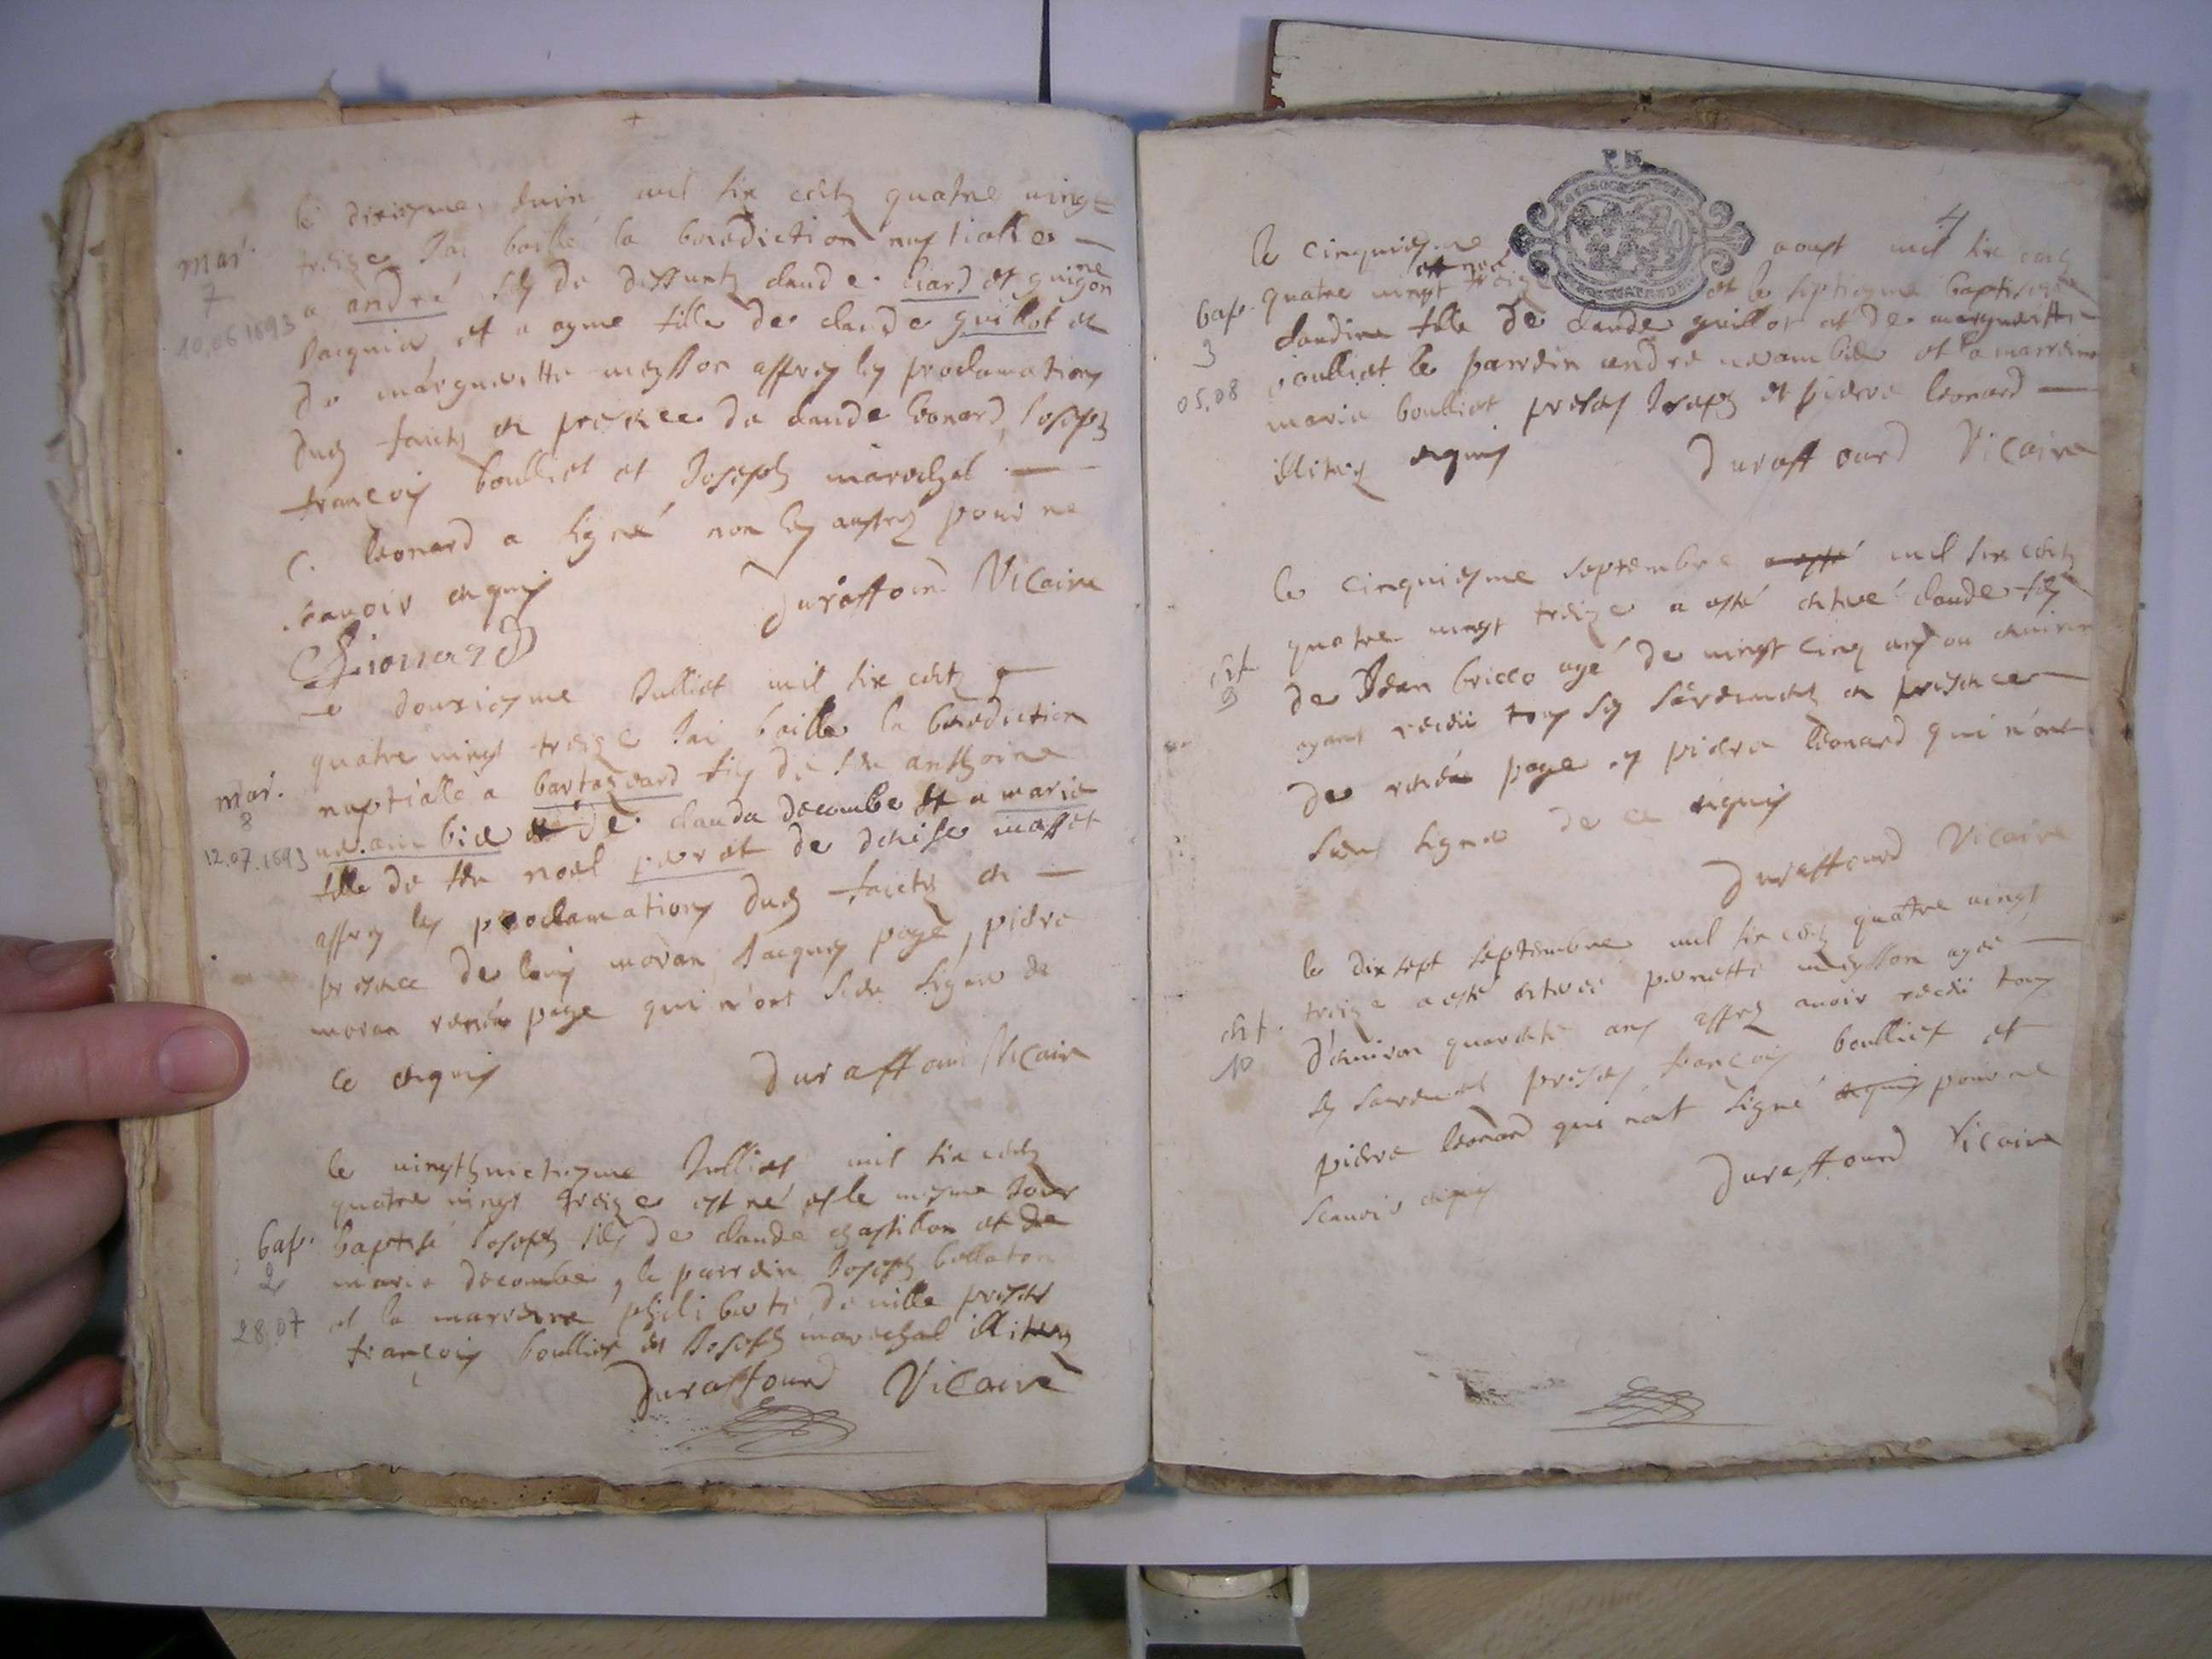 mar.
7
10.06 1693
le dixiesme Juin mil six centz quatre vingt
treize Jai baillé la benediction nuptialle
a andré filz de deffuntz claude liard et guigonne
Jacquier et a ayme fille de claude guillot et
de margueritte meysson apprez les proclamations
duez faictz en presence de claude leonard, Joseph
françois boulliet et Joseph marechal
C. leonard a signé non les austres pour ne
scavoir enquis
Duraffourd Vicaire
CLionard
mar.
8
12.07.1693
le douziesme Julliet mil six centz
quatre vingt treize Jai baillé la benediction
nuptialle a filz de feu anthoine
et de clauda decombe et a marie
fille de feu noel perret de denise masset
apprez les proclamations duez faictz en
presence de louis moran Jacques page, pierre
moran page qui n'ont sceu signer de
ce enquis
Duraffour Vicaire
bap.
2
28.07
le vingthuictiesme Julliet mil six centz
quatre vingt treize est né et le mesme Jour
baptisé Joseph filz de claude chastillon et de
marie decombe, le parrein Joseph bollaton
et la marreine philiberte de ville presens
françois boulliet et Joseph marechal illiterez
Duraffourd Vicaire
4
bap.
3
05.08
le cinquiesme aoust mil six cens
quatre vingt treize est née et le septiesme baptisée
claudine fille de claude guillot et de margueritte
boulliet le parrein andre et la marreine
marie boulliet presens Joseph et pierre leonard
illiterez enquis
Duraffourd Vicaire
ent.
9
le cinquiesme septembre a esté mil six centz
quatre vingt treize a esté enterré claude filz
de Jean bricco agé de vingt cinq ans ou environ
ayant receu tous ses sacrements en presence
de page et pierre leonard qui n'ont
sceu signe de ce enquis
Duraffourd Vicaire
ent.
10
le dix sept septembre mil six centz quatre vingt
treize a esté enterrée pernette meysson agée
d'environ quarente ans apprez avoir receu tous
ses sacremens presens françois boulliet et
pierre leonard qui n'ont signé enquis pour ne
scavoir enquis
Duraffourd Vicaire